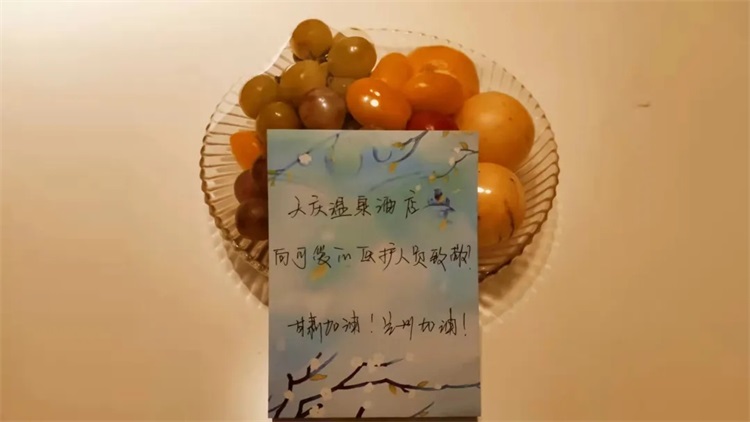 天庆温泉酒店
向可爱的医护人员致敬!
甘肃加油!兰州加油!